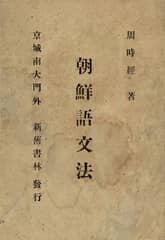 周時經 著
朝鮮語文法
京城南大門外 新舊書林 發行